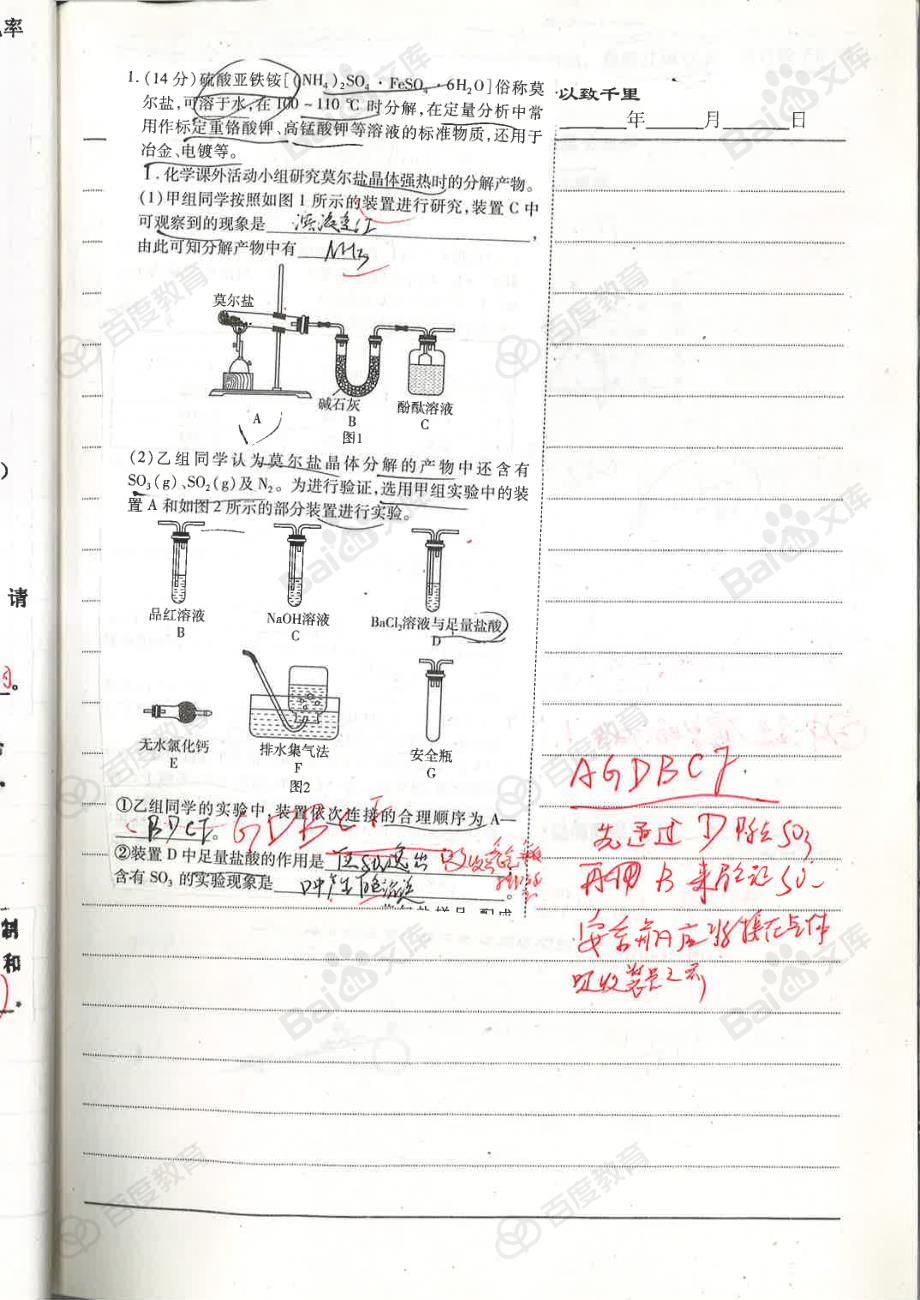 率
)
请
制
和
以致千里
年 月 日
1.(14分)硫酸亚铁铵[(NH₄)₂SO₄·FeSO₄·6H₂O]俗称莫
尔盐,可溶于水,在100~110 ℃ 时分解,在定量分析中常
用作标定重铬酸钾、高锰酸钾等溶液的标准物质,还用于
冶金、电镀等。
Ⅰ.化学课外活动小组研究莫尔盐晶体强热时的分解产物。
(1)甲组同学按照如图1所示的装置进行研究,装置C中
可观察到的现象是 溶液变红 ,
由此可知分解产物中有 NH₃
莫尔盐
碱石灰 酚酞溶液
A B C
图1
(2)乙组同学认为莫尔盐晶体分解的产物中还含有
SO₃(g)、SO₂(g)及N₂。为进行验证,选用甲组实验中的装
置A和如图2所示的部分装置进行实验。
品红溶液 NaOH溶液 BaCl₂溶液与足量盐酸
B C D
无水氯化钙 排水集气法 安全瓶
E F G
图2
①乙组同学的实验中,装置依次连接的合理顺序为A—
BDCF。 GDBCF
②装置D中足量盐酸的作用是 使SO₂逸出
含有SO₃的实验现象是 D中产生白色沉淀 。
AGDBCF
先通过D除去SO₃
再用B来验证SO₂
安全瓶应当接在气体
吸收装置之前
Baidu文库
百度教育